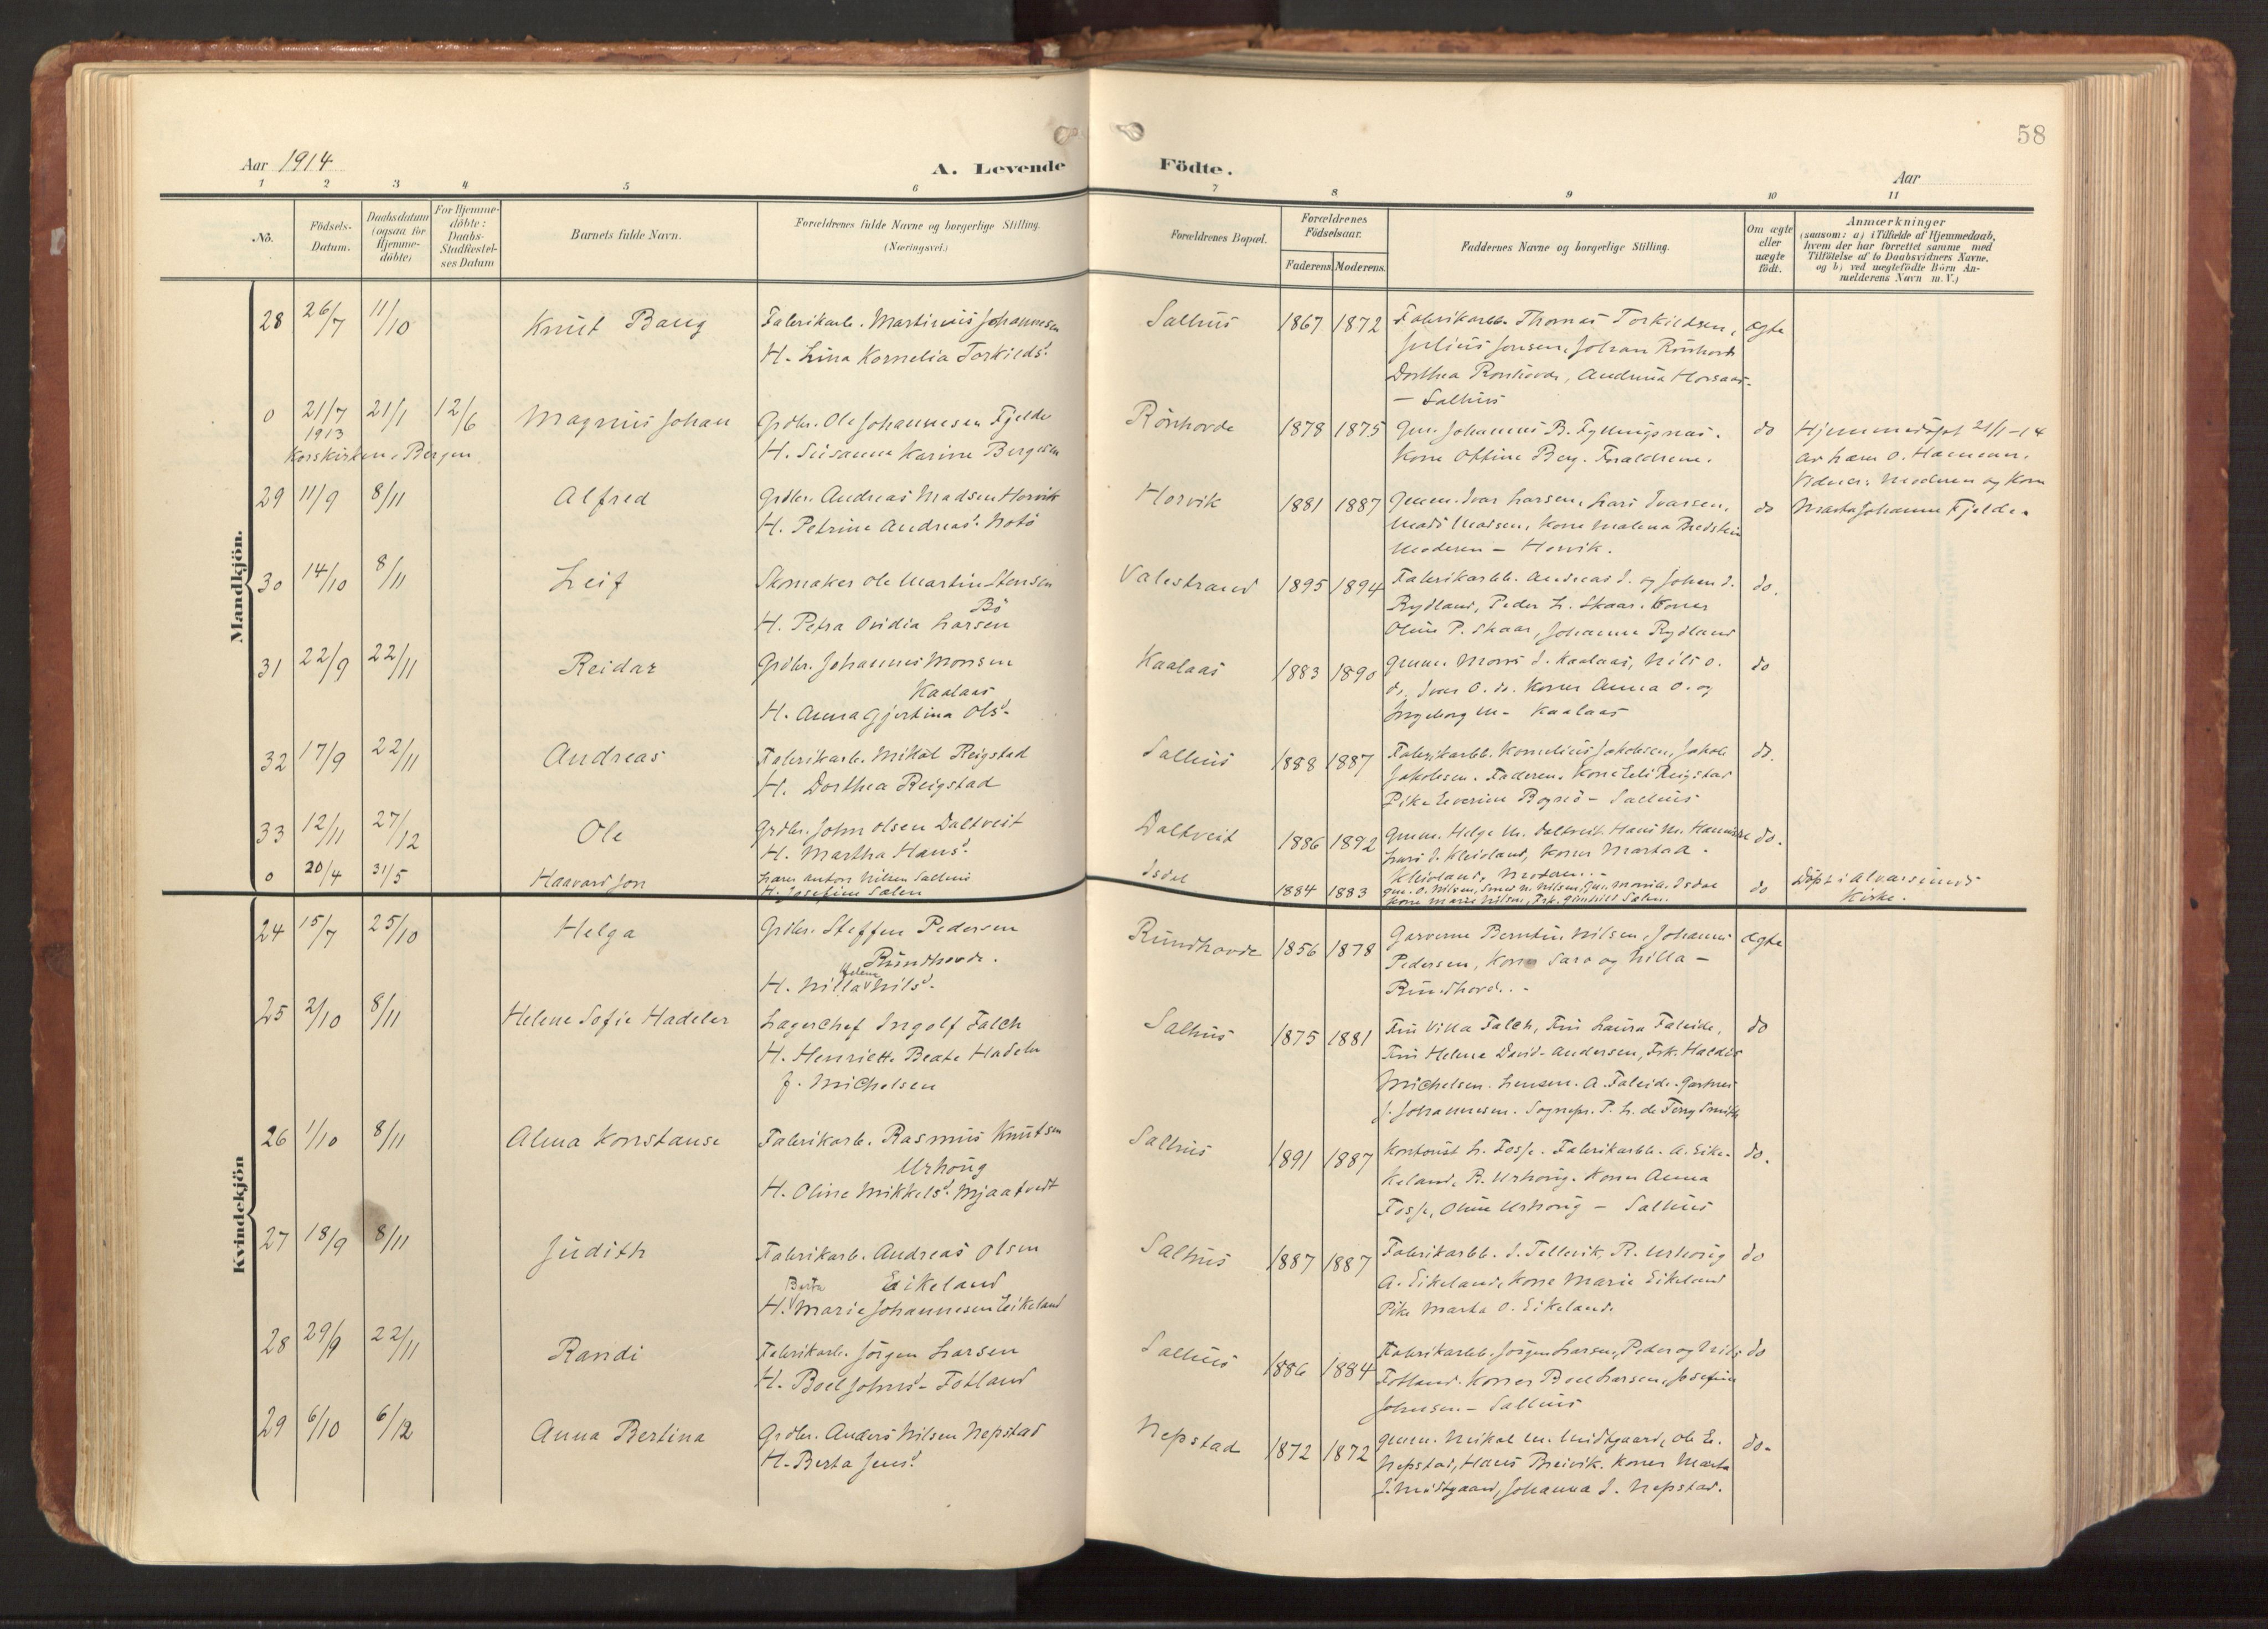 58
Aar 1914
A. Levende Födte.
Aar
1 2 3 4 5 6 7 8 9 10 11
No.
Födsels-Datum.
Daabsdatum (ogsaa for Hjemme-döbte)
For Hjemme-döbte: Daabs-Stadfæstel-ses Datum
Barnets fulde Navn.
Forældrenes fulde Navne og borgerlige Stilling. (Næringsvei.)
Forældrenes Bopæl.
Forældrenes Födselsaar.
Faderens. Moderens.
Faddernes Navne og borgerlige Stilling.
Om ægte eller uægte födt.
Anmærkninger
(saasom: a) i Tilfælde af Hjemmedaab,
hvem der har forrettet samme med
Tilföielse af to Daabsvidners Navne,
og b) ved uægtefödte Börn An-
melderens Navn m.V.)
Mandkjön.
28 26/7 11/10 Knut Baug Fabrikarb. Martinus Johannesen Salhus 1867 1872 Fabrikarbb. Thomas Torkildsen, ægte
H. Lina Kornelia Torkildsd. Julius Jonsen, Johan Rönhovde
Dorthea Rönhovde, Andrina Horsaas
– Salhus
0 21/7 21/1 12/6 Magnus Johan Grdbr. Ole Johannesen Fjelde Rönhovde 1878 1875 Gm. Johannes B. Fyllingsnæs. do Hjemmedöpt 21/1-14
1913
Korskirken, Bergen H. Susanna Karine Bergesen Kone Ottine Berg. Forældrene. av Lars O. Hammer.
Vidner: Moderen og Kone
29 11/9 8/11 Alfred Grdbr. Andreas Madsen Horvik Horvik 1881 1887 Gmm. Ivar Larsen, Lars Ivarsen, do Marta Johanne Fjelde.
H. Petrine Andreasd. Notö Mads Madsen, Kone Malena Bredstein
Moderen – Horvik.
30 14/10 8/11 Leif Skomaker Ole Martin Stensen Valestrand 1895 1894 Fabrikarbb. Andreas J. og Johan J. do.
Bö Rydland, Peder L. Skaar. Koner
H. Petra Ovidia Larsen Oline P. Skaar, Johanna Rydland
31 22/9 22/11 Reidar Grdbr. Johannes Monsen Kaalaas 1883 1890 Gmm. Mons J. Kaalaas, Nils O. do
Kaalaas do, Ivar O. do. Koner Anna O. og
H. Anna Gjertina Olsd. Ingeborg M. Kaalaas
32 17/9 22/11 Andreas Fabrikarb. Mikal Reigstad Salhus 1888 1887 Fabrikarbb. Kornelius Jakobsen, Jakob do.
H. Dorthea Reigstad Jakobsen. Faderen. Kone Eli Reigstad
Pike Severine Bognö – Salhus
33 12/11 27/12 Ole Grdbr. John Olsen Daltveit Daltveit 1886 1892 Gmm. Helge M. Daltveit, Hans M. do.
H. Martha Hansd. Lars J. Kleivland, Koner Marta A.
Kleivland, Moderen. –
0 20/4 31/5 Haavard Jon Lars Anton Nilsen Salhus Isdal 1884 1883 do Döpt i Alversund
H. Josefine Sælen Kone Marie Nilsen, Frk. Gunhild Sælen. Kirke.
Kvindekjön
24 15/7 25/10 Helga Grdbr. Steffen Pedersen Rundhovde 1856 1878 Garverne Berntin Nilsen, Johannes ægte
Rundhovde. Pedersen, Koner Sara og Nilla –
Helene
H. Nilla Nilsd. Rundhovde. –
25 2/10 8/11 Helene Sofie Hadeler Lagerchef Ingolf Falch Salhus 1875 1881 Fru Villa Falch, Fru Laura Faleide, do
H. Henriette Beate Hadeler Fru Helene David-Andersen, Frk. Haldis
f. Michelsen Michelsen. Lensm. A. Faleide. Gartner
J. Johannesen. Sognepr. P. L. de Ferry Smith
26 1/10 8/11 Alma Konstanse Fabrikarb. Rasmus Knutsen Salhus 1891 1887 Kontorist L. Fosse. Fabrikarbb. A. Eike- do.
Urhoug keland, R. Urhoug. Koner Anna
H. Oline Mikkelsd. Mjaatvedt Fosse, Oline Urhoug – Salhus
27 18/9 8/11 Judith Fabrikarb. Andreas Olsen Salhus 1887 1887 Fabrikarbb. J. Tellevik, R. Urhoug do
Berta Eikeland A. Eikeland, Kone Marie Eikeland
H. Marie Johannesen Eikeland Pike Marta O. Eikeland.
28 29/9 22/11 Randi Fabrikarb. Jörgen Larsen Salhus 1886 1884 Fabrikarbb. Jörgen Larsen, Peder og Nils do
H. Boel Johnsd. Fotland Fotland. Koner Boel Larsen, Josefine
Johnsen. – Salhus
29 6/10 6/12 Anna Bertina Grdbr. Anders Nilsen Nepstad Nepstad 1872 1872 Gmm. Mikal M. Midtgaard, Ole E. do.
H. Berta Jensd. Nepstad, Hans Breivik. Koner Marta
J. Midtgaard, Johanna J. Nepstad.